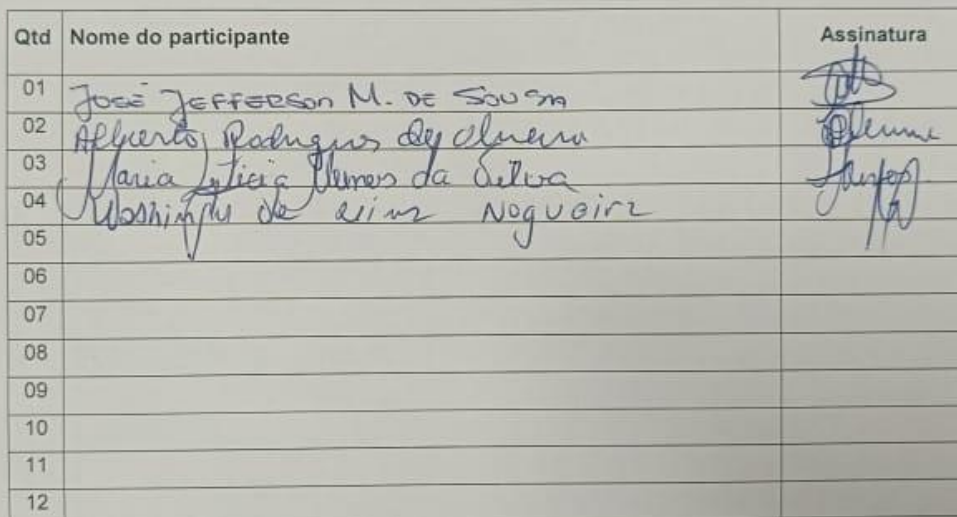 Qtd Nome do participante Assinatura
01 José Jefferson M. de Sousa
02 Alberto Rodrigues de Oliveira
03 Maria Letícia Lemos da Silva
04 Washington de Lima Nogueira
05
06
07
08
09
10
11
12